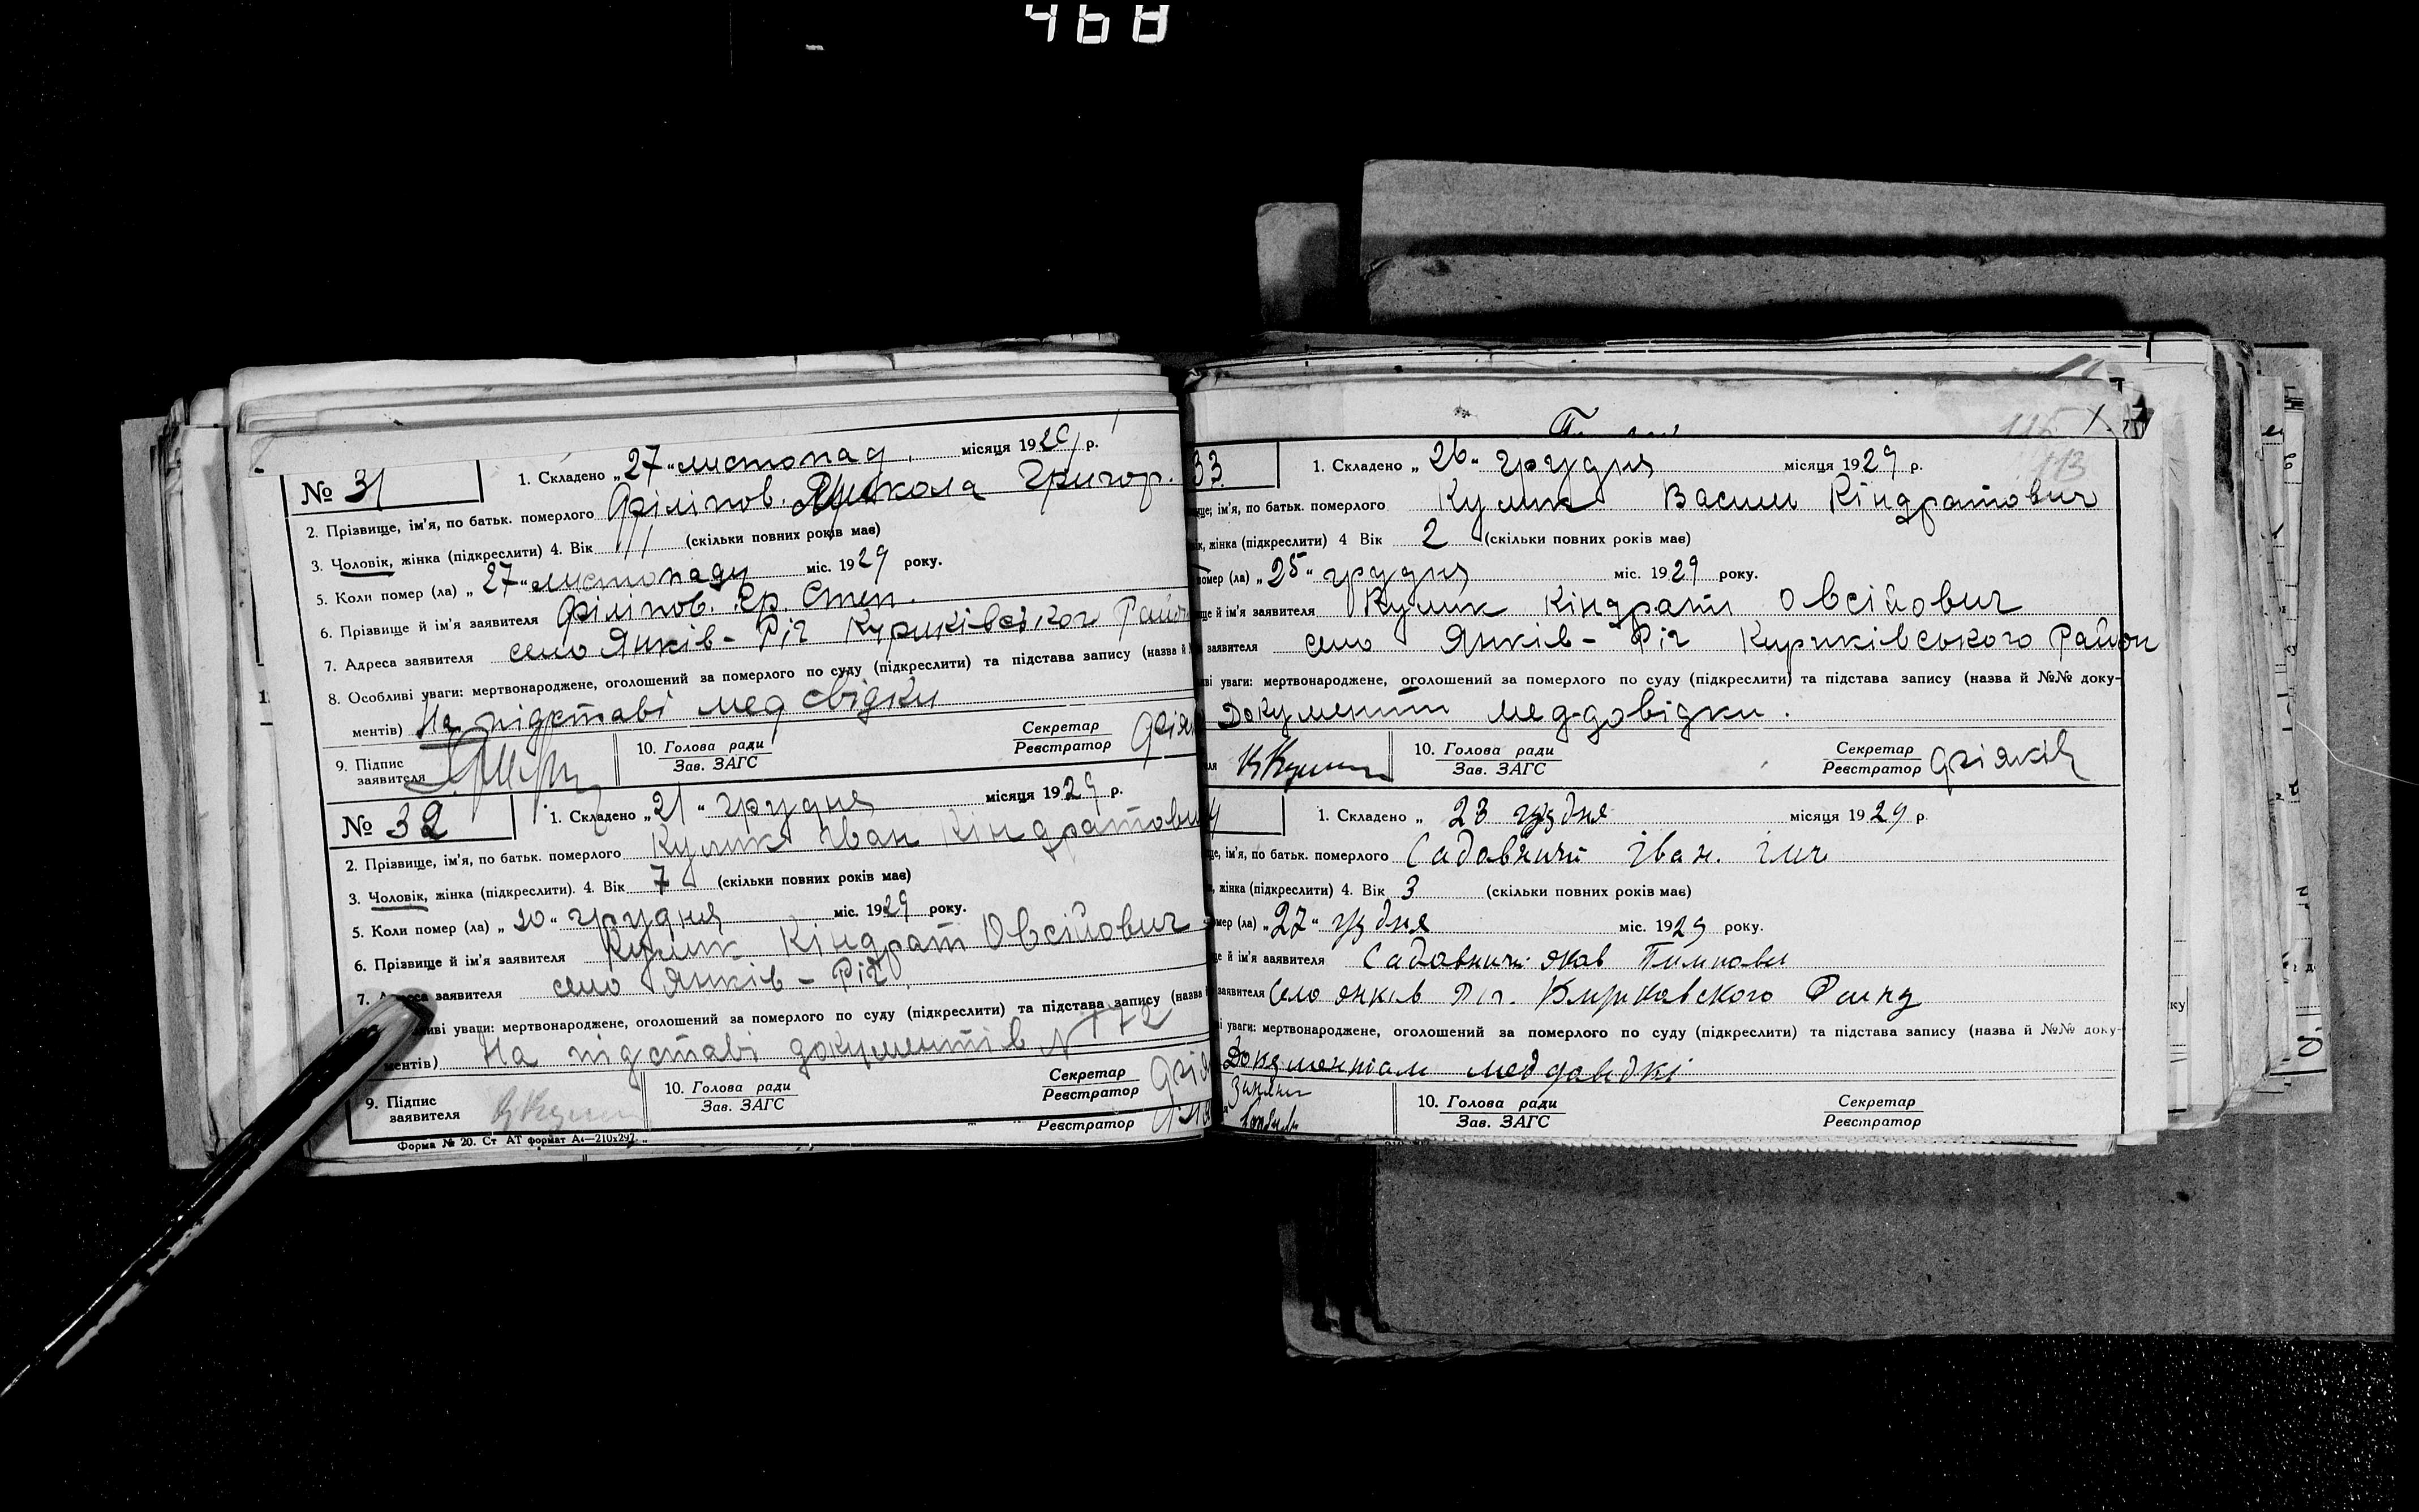 468
№ 31
1. Складено „27" листопад, місяця 1929 р.
2. Прізвище, ім'я, по батьк. померлого Філіпов. Микола Григор.
3. Чоловік, жінка (підкреслити) 4. Вік (скільки повних років має)
5. Коли помер (ла) „27" листопаду міс. 1929 року.
6. Прізвище й ім'я заявителя Філіпов. Гр. Степ.
7. Адреса заявителя село Янків-Ріг Кириківського Район
8. Особливі уваги: мертвонароджене, оголошений за померлого по суду (підкреслити) та підстава запису (назва й
ментів) На підставі мед свідки
9. Підпис заявителя
10. Голова ради
Зав. ЗАГС
Секретар
Реєстратор
№ 32
1. Складено „21" грудня місяця 1929 р.
2. Прізвище, ім'я, по батьк. померлого Кулик Іван Кіндратович
3. Чоловік, жінка (підкреслити). 4. Вік 7 (скільки повних років має)
5. Коли помер (ла) „20" грудня міс. 1929 року.
6. Прізвище й ім'я заявителя Кулик Кіндрат Овсійович
7. заявителя село Янків-Ріг.
уваги: мертвонароджене, оголошений за померлого по суду (підкреслити) та підстава запису (назва
ментів) На підставі документів N 172
9. Підпис заявителя
10. Голова ради
Зав. ЗАГС
Секретар
Реєстратор
Реєстратор
Форма № 20. Ст АТ формат А4—210х297.
33
1. Складено „26" грудня місяця 1929 р.
113
ім'я, по батьк. померлого Кулик Васили Кіндратович
жінка (підкреслити) 4 Вік 2 (скільки повних років має)
помер (ла) „25" грудня міс. 1929 року.
й ім'я заявителя Кулик Кіндрат Овсійович
заявителя село Янків-Ріг Кириківського Район
уваги: мертвонароджене, оголошений за померлого по суду (підкреслити) та підстава запису (назва й №№ доку-
Документи мед-довідки.
К Кулик
10. Голова ради
Зав. ЗАГС
Секретар
Реєстратор
4
1. Складено „ 28 грудня місяця 1929 р.
ім'я, по батьк. померлого Садовничий Іван.
жінка (підкреслити) 4. Вік 3 (скільки повних років має)
помер (ла) „27" грудня міс. 1929 року.
й ім'я заявителя Садовничи Яков
заявителя Село Янків Ріг.
уваги: мертвонароджене, оголошений за померлого по суду (підкреслити) та підстава запису (назва й №№ доку-
10. Голова ради
Зав. ЗАГС
Секретар
Реєстратор